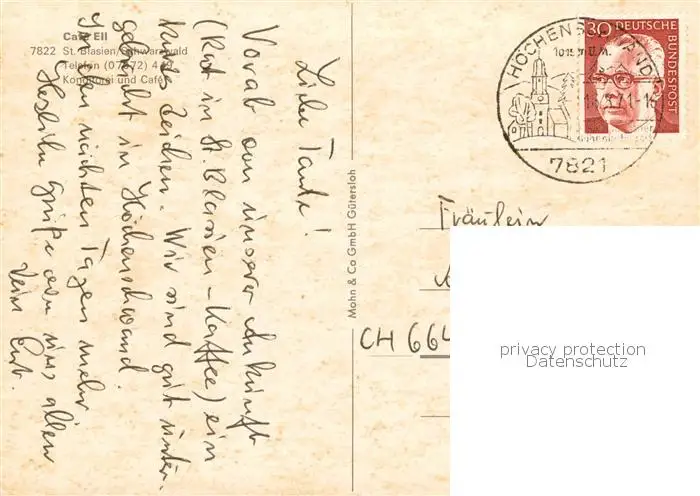 Café Ell
7822 St. Blasien/Schwarzwald
Telefon (07672) 4
Konditorei und Café
Liebe Tante!
Vorab von unserer Ankunft
(Rast in St. Blasien-Kaffee) ein
kurzes Zeichen. Wir sind gut unter-
gebracht in Höchenschwand.
In den nächsten Tagen mehr
Herzliche Grüße von uns allen
Dein
Mohn & Co GmbH Gütersloh
HÖCHENSCHWAND
1015 m ü. M.
71-16
7821
30 DEUTSCHE
BUNDESPOST
Fräulein
CH 664
privacy protection
Datenschutz